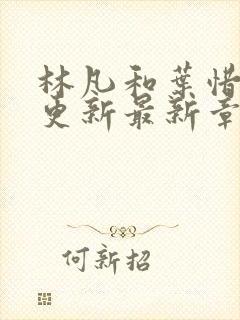 林凡和葉惜
更新最新章
何新招